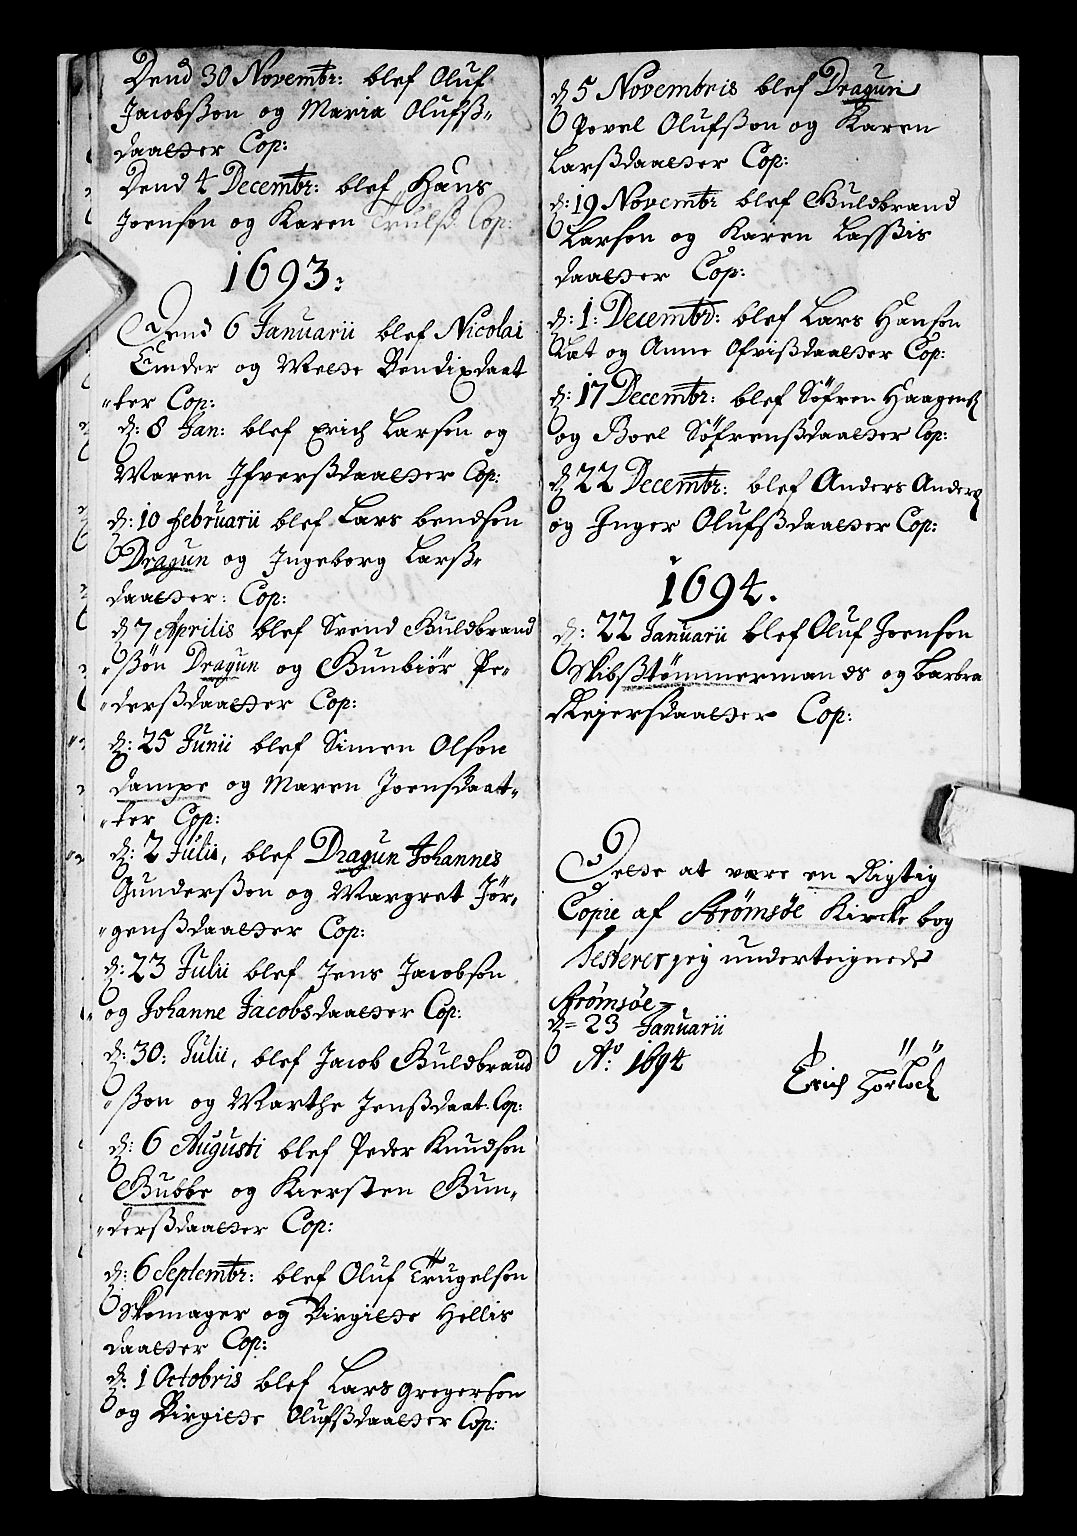 Dend 30 Novembr: blef Oluf
Jacobßon og Maria Olufß-
daatter Cop:
Dend 4 Decembr: blef Hans
Joenson og Karen Truls Cop:
1693:
Dend 6 Januarii blef Nicolai
Emder og Mette Bendixdaat
ter Cop:
d: 8 Jan: blef Erich Larsen og
Maren Ifverßdaatter Cop:
d: 10 februarii blef Lars bendson
Dragun og Ingeborg Larß-
daatter: Cop:
d 7 Aprilis blef Svend Guldbrand
ßøn Dragun og Gunbiør Pe-
derßdaatter Cop:
d: 25 Junii blef Simen Olson
dampe og Maren Joensdaat-
ter Cop:
d: 2 Julii, blef Dragun Johannes
Gunderßon og Margret Jør-
genßdaatter Cop:
d: 23 Julii blef Jens Jacobson
og Johanne Jacobsdaatter Cop:
d: 30: Julii, blef Jacob Guldbrand
ßon og Marthe Jenßdaat: Cop:
d: 6 Augusti blef Peder Knudson
Bubbe og Kiersten Gun-
derßdaatter Cop:
d: 6 Septembr: blef Oluf Trugelson
Skomager og Birgitte Hellis
daatter Cop:
d: 1 Octobris blef Lars gregerson
og Birgitte Olufßdaatter Cop:
d 5 Novembris blef Dragun
Povel Olufßon og Karen
Larßdaatter Cop:
d: 19 Novembr blef Guldbrand
Larson og Karen Laßis
daatter Cop:
d: 1: Decembr: blef Lars Hanson
Rat og Anne Ofvißdaatter Cop:
d: 17 Decembr: blef Søfren Haagens
og Boel Søfrenßdaatter Cop:
d 22 Decembr: blef Anders Anders
og Inger Olufßdaatter Cop:
1694.
d: 22 Januarii blef Oluf Joenson
Skibßtømmermand og Barbra
Rejersdaatter Cop:
Dette at være en Rigtig
Copie af Strømsøe Kircke bog
Testerer jeg underteignede
Strømsøe
d= 23 Januarii
Aº: 1694
Erich